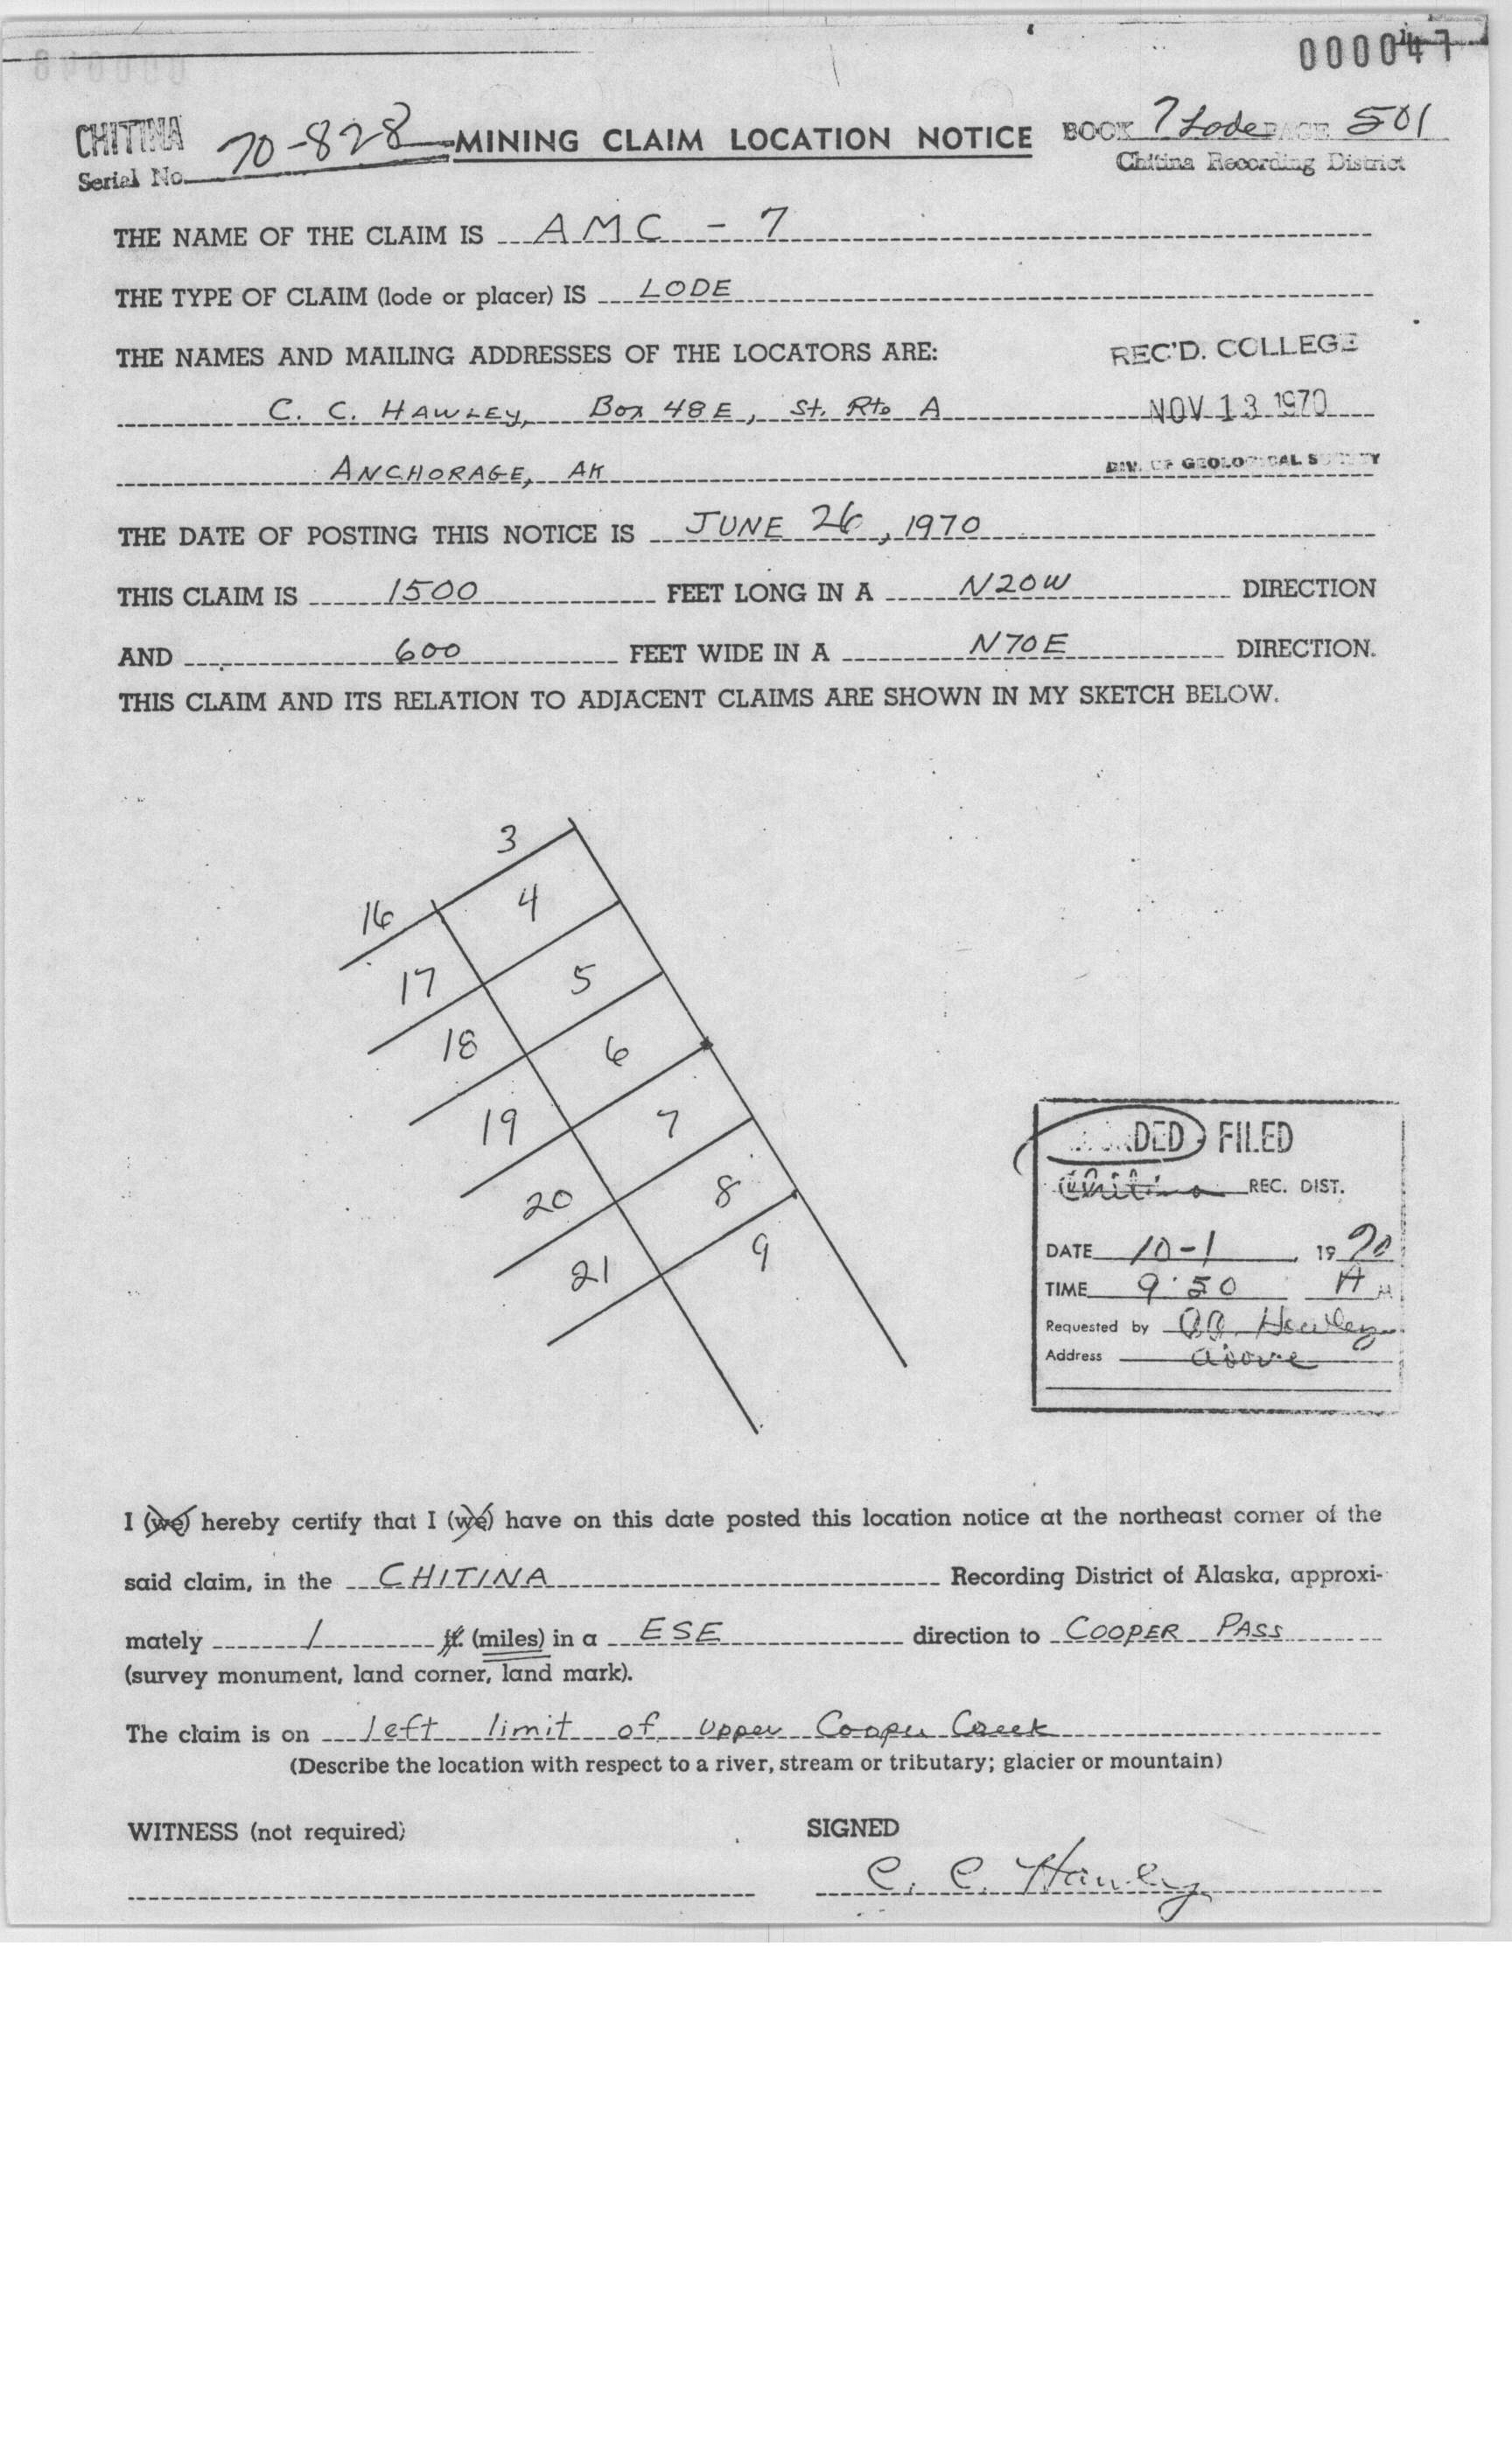 000047
CHITINA
Serial No. 70-828 MINING CLAIM LOCATION NOTICE BOOK 7 Lode PAGE 501
Chitina Recording District
THE NAME OF THE CLAIM IS AMC - 7
THE TYPE OF CLAIM (lode or placer) IS LODE
THE NAMES AND MAILING ADDRESSES OF THE LOCATORS ARE: REC'D. COLLEGE
C. C. HAWLEY, Box 48E, St. Rte A NOV 13 1970
ANCHORAGE, AK DIV. OF GEOLOGICAL SURVEY
THE DATE OF POSTING THIS NOTICE IS JUNE 26, 1970
THIS CLAIM IS 1500 FEET LONG IN A N20W DIRECTION
AND 600 FEET WIDE IN A N70E DIRECTION.
THIS CLAIM AND ITS RELATION TO ADJACENT CLAIMS ARE SHOWN IN MY SKETCH BELOW.
3
16 4
17 5
18 6
19 7
20 8
21 9
DED FILED
Chitina REC. DIST.
DATE 10-1 1970
TIME 9:50 A M
Requested by C.C. Hawley
Address above
I (we) hereby certify that I (we) have on this date posted this location notice at the northeast corner of the
said claim, in the CHITINA Recording District of Alaska, approxi-
mately 1 ft. (miles) in a ESE direction to COOPER PASS
(survey monument, land corner, land mark).
The claim is on left limit of Upper Cooper Creek
(Describe the location with respect to a river, stream or tributary; glacier or mountain)
WITNESS (not required) SIGNED
C. C. Hawley